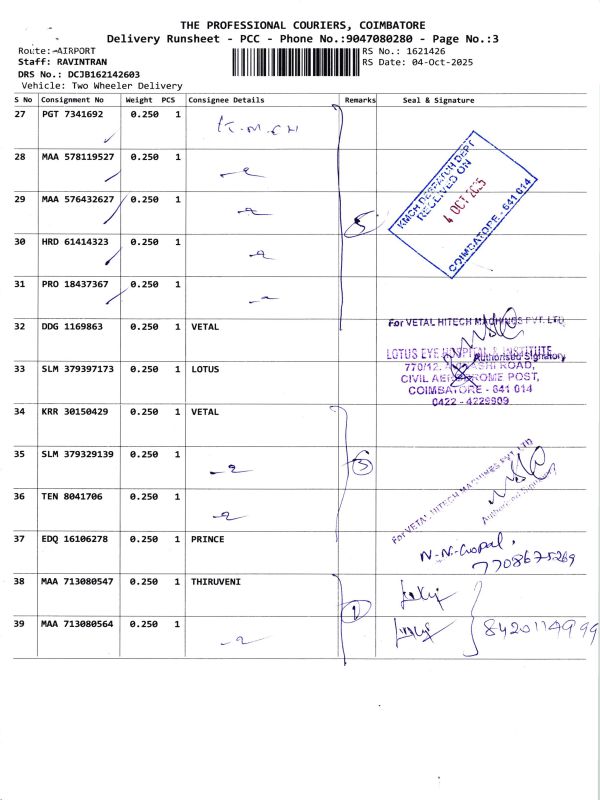 THE PROFESSIONAL COURIERS, COIMBATORE
Delivery Runsheet - PCC - Phone No.:9047080280 - Page No.:3
Route:-AIRPORT
RS No.: 1621426
Staff: RAVINTRAN
RS Date: 04-Oct-2025
DRS No.: DCJB162142603
Vehicle: Two Wheeler Delivery
S No Consignment No Weight PCS Consignee Details Remarks Seal & Signature
27 PGT 7341692 0.250 1 K.M.CH
28 MAA 578119527 0.250 1
29 MAA 576432627 0.250 1
30 HRD 61414323 0.250 1
31 PRO 18437367 0.250 1
5
KMCH DESPATCH DEPT
RECEIVED ON
4 OCT 2025
COIMBATORE - 641 014
32 DDG 1169863 0.250 1 VETAL
For VETAL HITECH MACHINES PVT. LTD
Authorised Signatory
33 SLM 379397173 0.250 1 LOTUS
LOTUS EYE HOSPITAL & INSTITUTE
770/12, AVINASHI ROAD,
CIVIL AERODROME POST,
COIMBATORE - 641 014
0422 - 4229909
34 KRR 30150429 0.250 1 VETAL
35 SLM 379329139 0.250 1
3
36 TEN 8041706 0.250 1
For VETAL HITECH MACHINES PVT LTD
37 EDQ 16106278 0.250 1 PRINCE
N-N-Gopal,
7708675269
38 MAA 713080547 0.250 1 THIRUVENI
39 MAA 713080564 0.250 1
8420114999